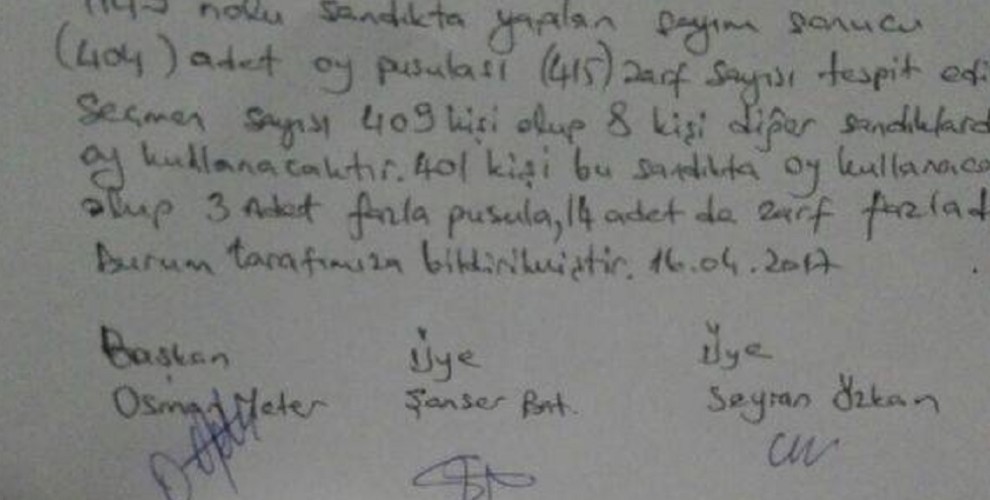 nolu sandıkta yapılan sayım sonucu
(404) adet oy pusulası (415) zarf sayısı tespit edi
Seçmen sayısı 409 kişi olup 8 kişi diğer sandıklard
oy kullanacaktır. 401 kişi bu sandıkta oy kullanaca
olup 3 adet fazla pusula, 14 adet de zarf fazlad
Durum tarafımıza bildirilmiştir. 16.04.2017
Başkan Üye Üye
Osman Şenser Seyran Özkan